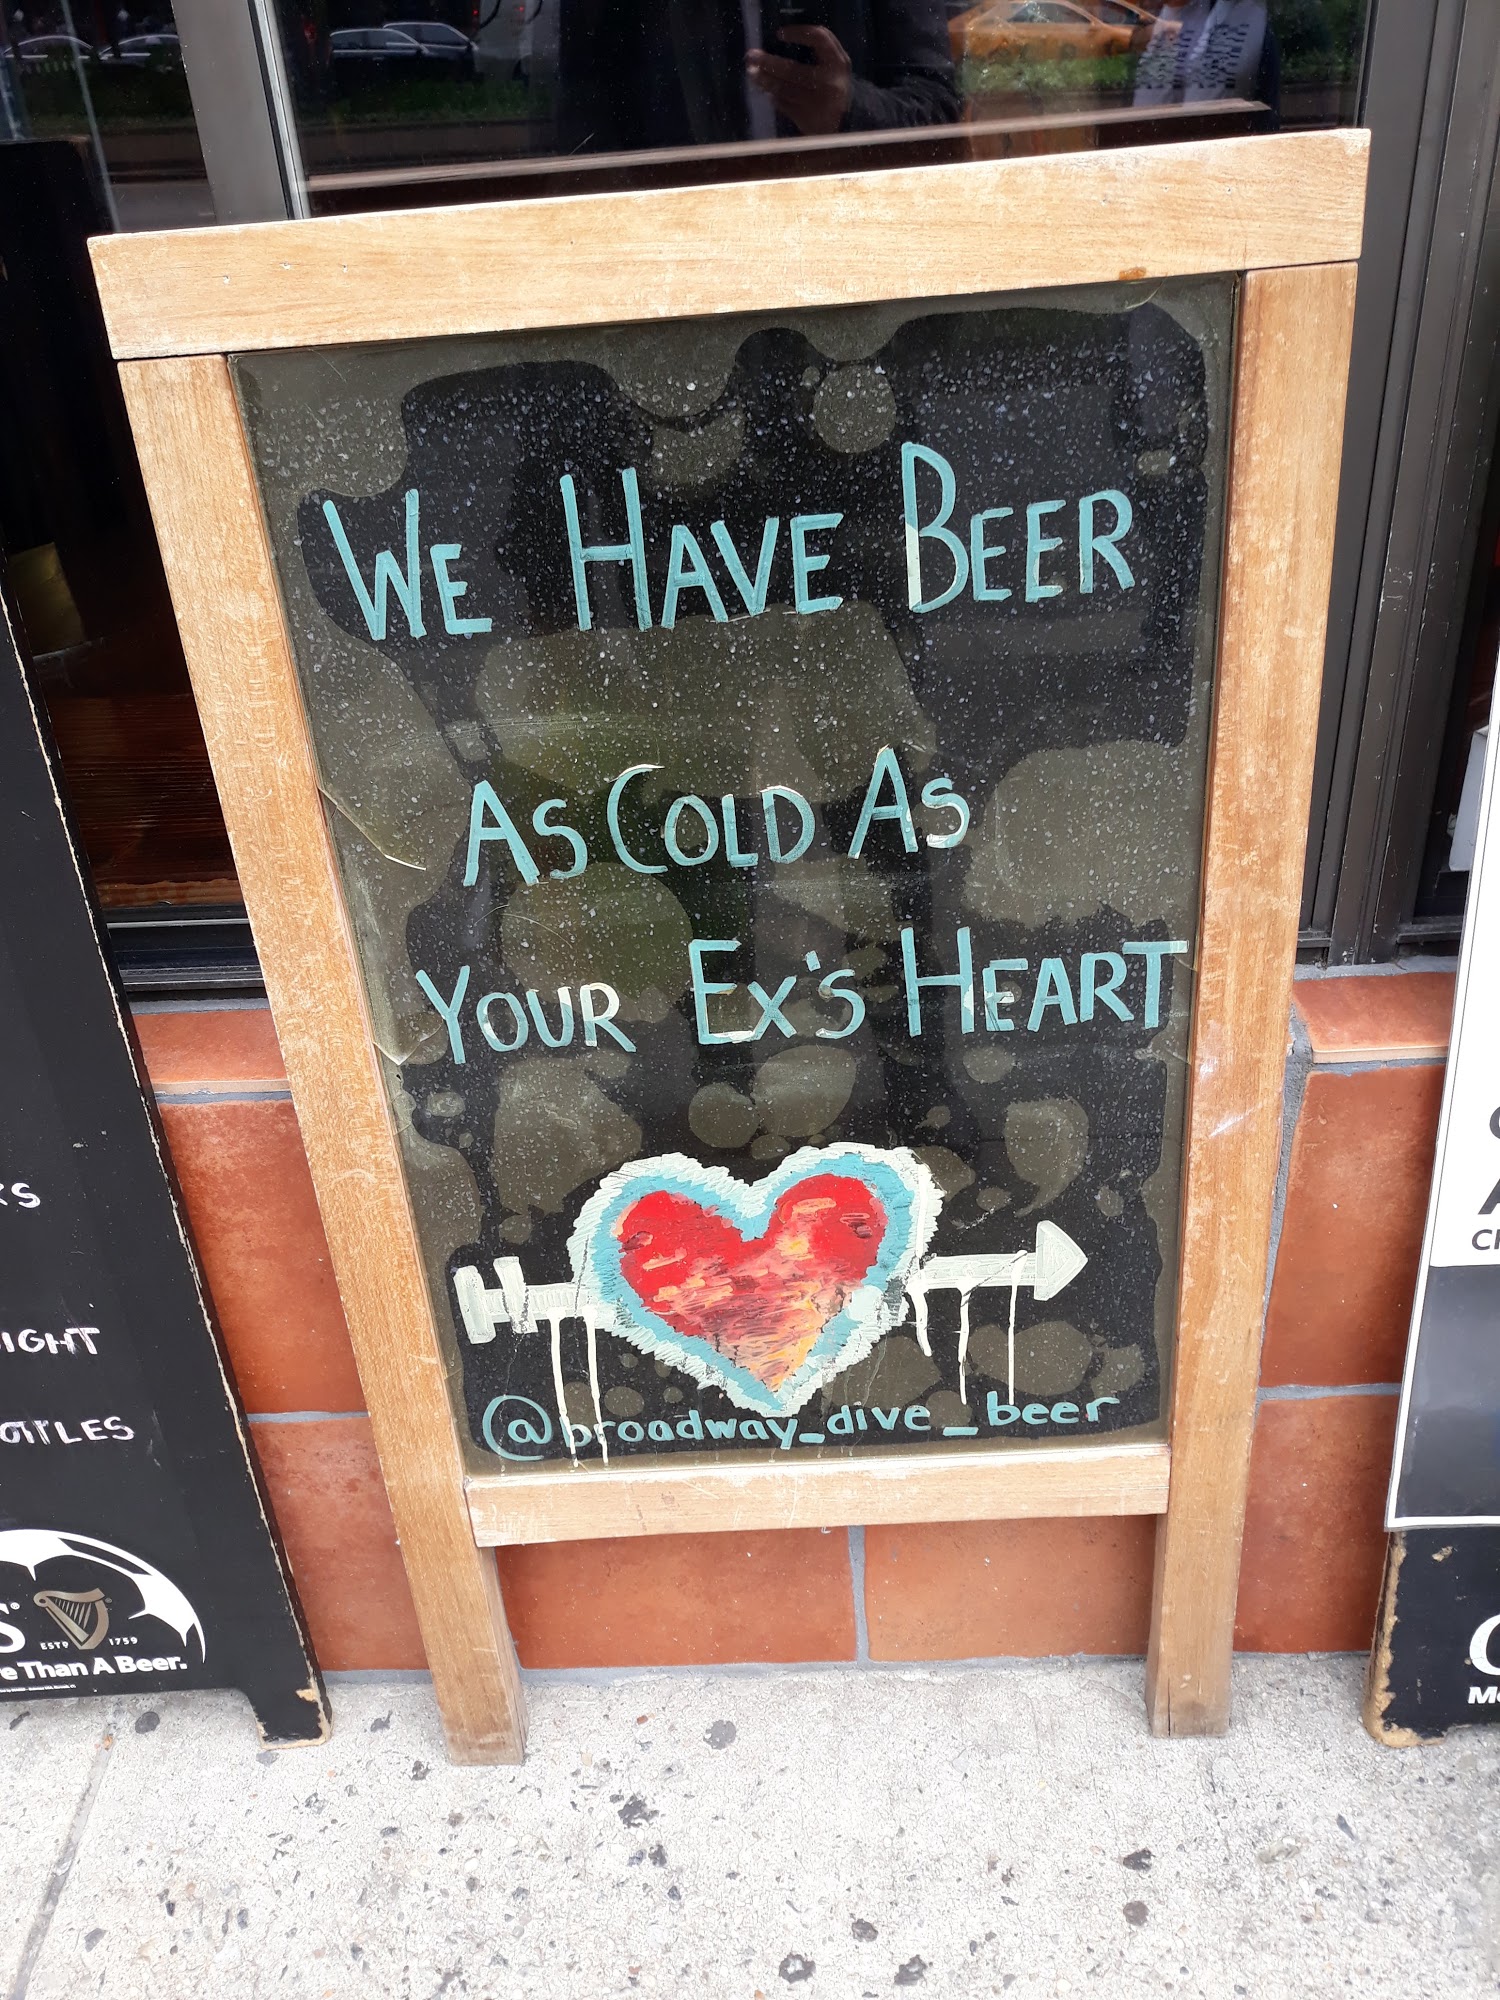 We Have Beer
As Cold As
Your Ex's Heart
@broadway_dive_beer
IGHT
ESTD 1759
Than A Beer.